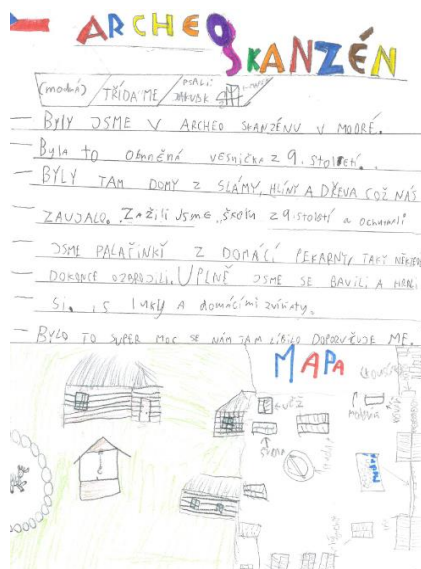 ARCHEO
SKANZÉN
(modrá) TŘÍDA ME PSALI JAKUBK
– BYLY JSME V ARCHEO SKANZÉNU V MODRÉ.
– Byla to obraněná vesnička z 9. století.
– BYLY TAM DOMY Z SLÁMY, HLÍNY A DŘEVA COŽ NÁS
– ZAUJALO. Zažili jsme školu z 9. století a ochutnali
– JSME PALAČINKI Z DOMÁCÍ PEKARNY TAKY NĚKTEŘ
– DOKONCE OZBROJILI. ÚPLNĚ JSME SE BAVILI A HRÁLI
– Si. S luky A domácími zvířaty.
– BYLO TO SUPER MOC SE NÁM TAM LÍBILO DOPORUČUJE ME.
MAPA